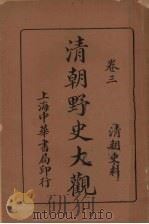 卷三
清朝史料
清朝野史大觀
上海中華書局印行